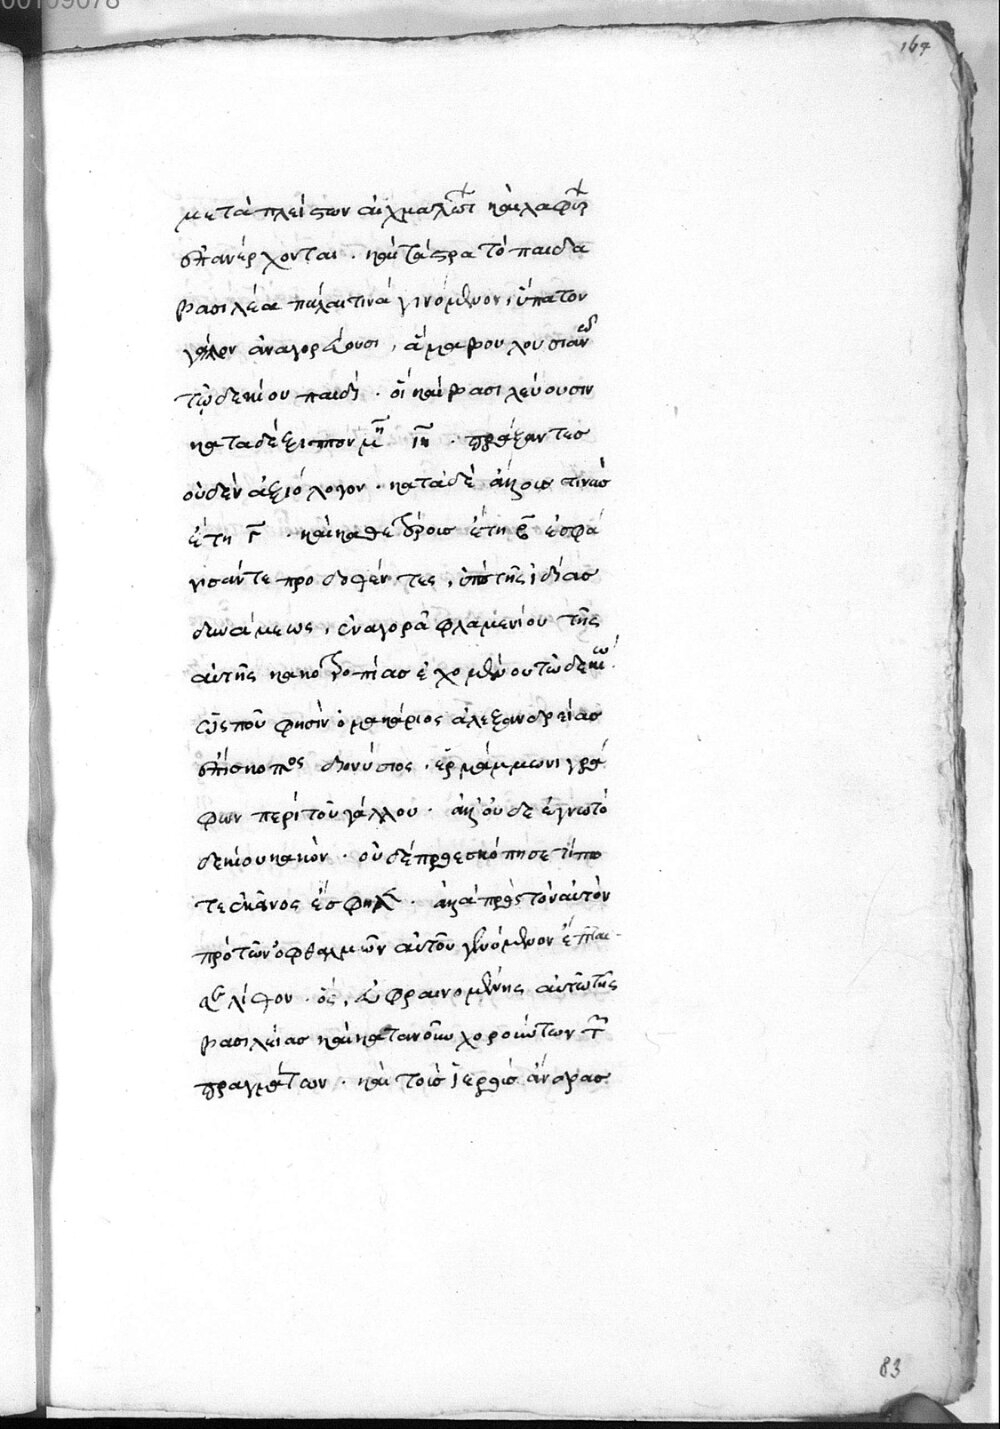 00109078
167
μετὰ πλείστων αἰχμαλώτ καὶ λαφύρ
ἐπανέρχονται . καὶ
βασιλέα γινόμενον , ὕπατον
γάλλον ἀναγορεύουσι , ἅμα βουλουσιανῶ
τῶ δεκίου παιδὶ . οἳ καὶ βασιλεύουσιν
κατὰ δέξιππον μῆ ιη . πράξαντες
οὐδὲν ἀξιόλογον . κατὰ δὲ ἄλλοις τινὰς
ἔτη γ . καὶ καθ' ἑτέροις ἔτη β ἐσφά
γησάν τε προδοθέντες , ὑπὸ τῆς ἰδίας
δυνάμεως , ἐν ἀγορᾶ φλαμενίου τῆς
αὐτῆς κακοτροπίας ἐχόμενοι τῶ δεκίω
ὥς που φησὶν ὁ μακάριος ἀλεξανδρείας
ἐπίσκοπος διονύσιος . ἑρμάμμωνι γρά
φων περὶ τοῦ γάλλου . ἀλλ' οὐδὲ ἔγνω τὸ
δεκίου κακὸν . οὐδὲ προεσκόπησε τί πο
τε ἐκεῖνος ἔσφηλε . ἀλλὰ πρὸς τὸν αὐτὸν
πρὸ τῶν ὀφθαλμῶν αὐτοῦ γενόμενον ἔπται
σε λίθον . ὅς , εὐφραινομένης αὐτῶ τῆς
βασιλείας καὶ κατὰ νοῦν χωρούντων τ
πραγμάτων . καὶ τοὺς ἱεροὺς ἄνδρας
83